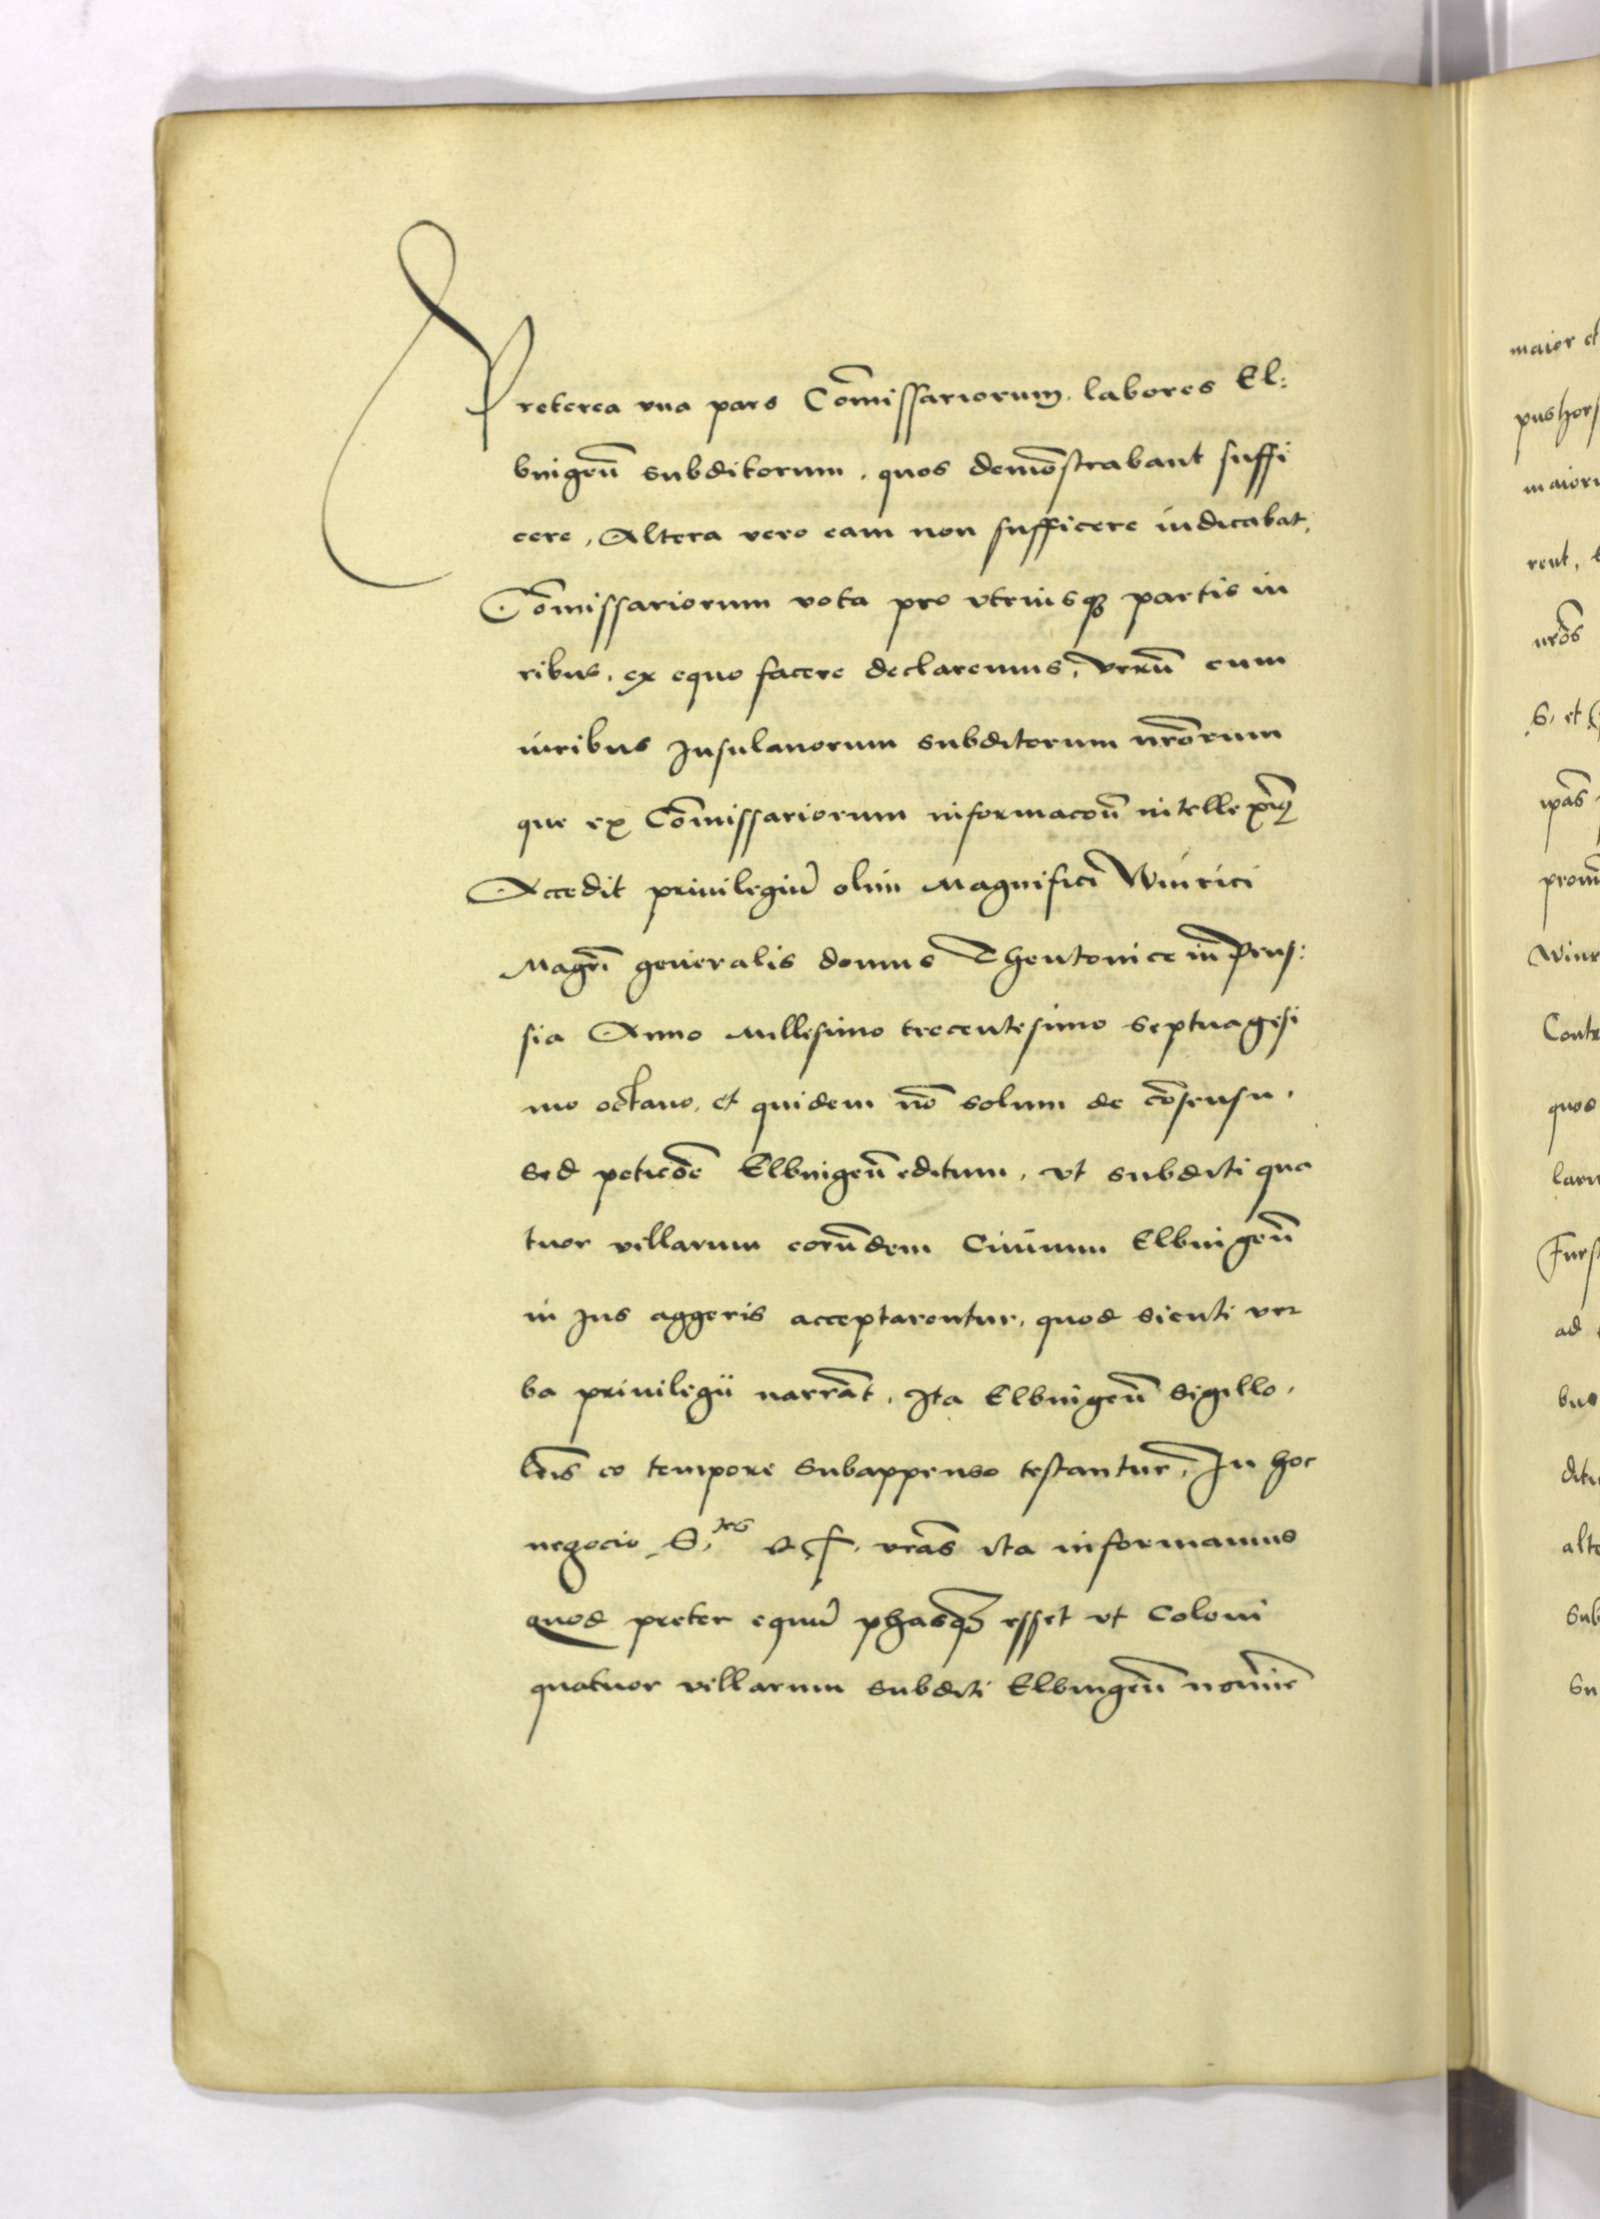 Preterea vna pars Com̄issariorum. labores El:
bingen̄ subditorum. quos demōstrabant suffi
cere, Altera vero eam non sufficere iudicabat,
Com̄issariorum vota pro vtriusq₃ partis iu
ribus. ex equo facere declaremus, verū cum
iuribus Insulanorum subditorum nr̄orum
que ex Com̄issariorum informacōn̄ intellex̄im⁹
Accedit priuilegiū olim Magnifici Winrici
Magr̄i generalis domus Theutonice in Prus:
sia Anno Millesimo trecentesimo septuagesi
mo octauo, et quidem nō solum de cōsensu.
sed peticōe Elbingen̄ editum, vt subditi qua
tuor villarum eorūdem Ciuium Elbingen̄
in Ius aggeris acceptarentur, quod sicuti ver
ba priuilegii narrāt, Ita Elbingen̄ Sigillo,
lr̄is eo tempore Subappenso testantur, In hoc
negocio S. tes et f. vr̄as ita informamus
quod preter equū phasq₃ esset vt Coloni
quatuor villarum subditi Elbingen̄ nomīe
maior et
maiori
rent,
nr̄os
S. et
ip̄as
Winr
Contr
quod
laru
ad
bus
ditu
alte
sub
su